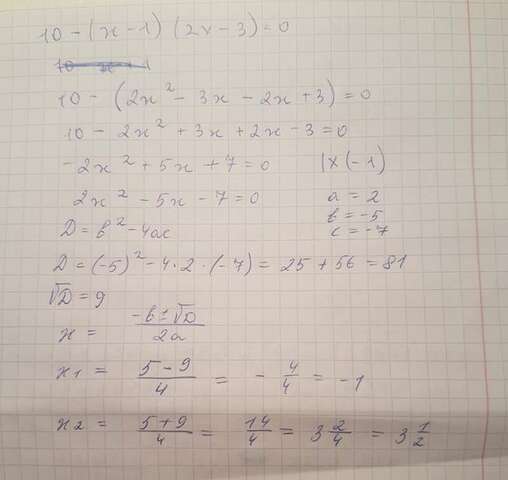 10 - (x - 1) (2x - 3) = 0
10 - (2x² - 3x - 2x + 3) = 0
10 - 2x² + 3x + 2x - 3 = 0
-2x² + 5x + 7 = 0 | × (-1)
2x² - 5x - 7 = 0 a = 2
D = b² - 4ac b = -5
c = -7
D = (-5)² - 4 · 2 · (-7) = 25 + 56 = 81
√D = 9
x = (-b ± √D)/(2a)
x1 = (5 - 9)/4 = - 4/4 = -1
x2 = (5 + 9)/4 = 14/4 = 3 2/4 = 3 1/2